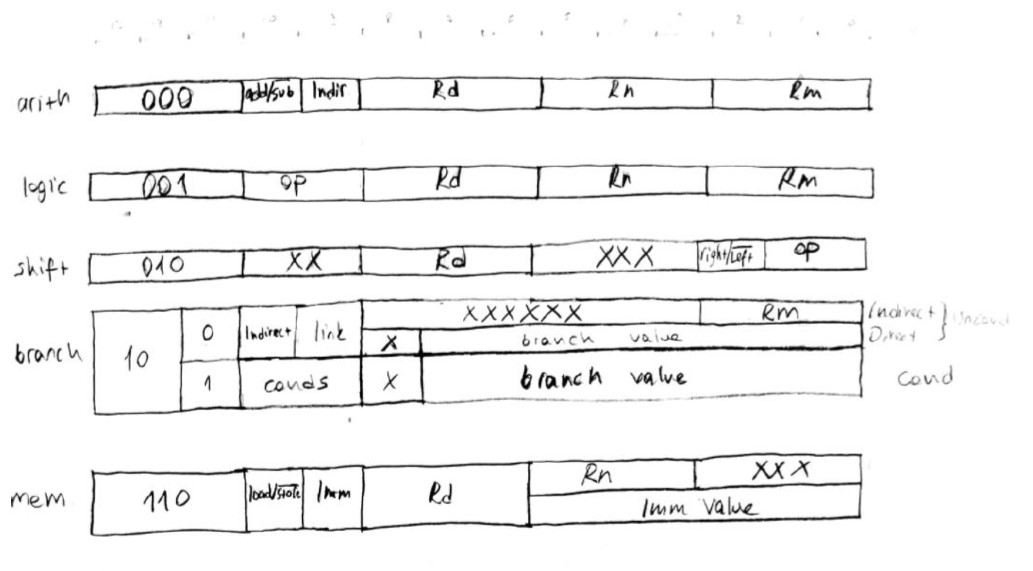 arith 000 add/sub Indir Rd Rn Rm
logic 001 op Rd Rn Rm
shift 010 XX Rd XXX right/left op
branch 10 0 Indirect link XXXXXX Rm Indirect
X branch value Direct
1 conds X branch value Cond
mem 110 load/store Imm Rd Rn XXX
Imm value